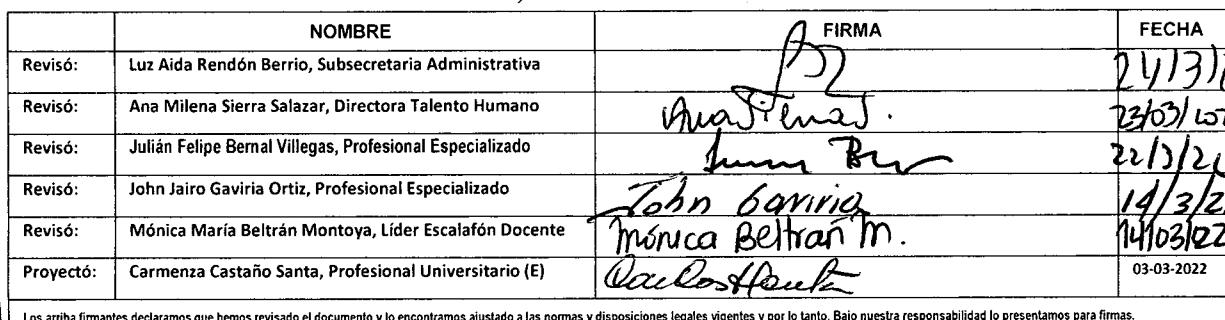 NOMBRE FIRMA FECHA
Revisó: Luz Aida Rendón Berrio, Subsecretaria Administrativa 24/3/2
Revisó: Ana Milena Sierra Salazar, Directora Talento Humano 23/03/
Revisó: Julián Felipe Bernal Villegas, Profesional Especializado 22/3/2
Revisó: John Jairo Gaviria Ortiz, Profesional Especializado John Gaviria 14/3/2
Revisó: Mónica María Beltrán Montoya, Líder Escalafón Docente Mónica Beltrán M. 14/03/22
Proyectó: Carmenza Castaño Santa, Profesional Universitario (E) 03-03-2022
Los arriba firmantes declaramos que hemos revisado el documento y lo encontramos ajustado a las normas y disposiciones legales vigentes y por lo tanto. Bajo nuestra responsabilidad lo presentamos para firmas.